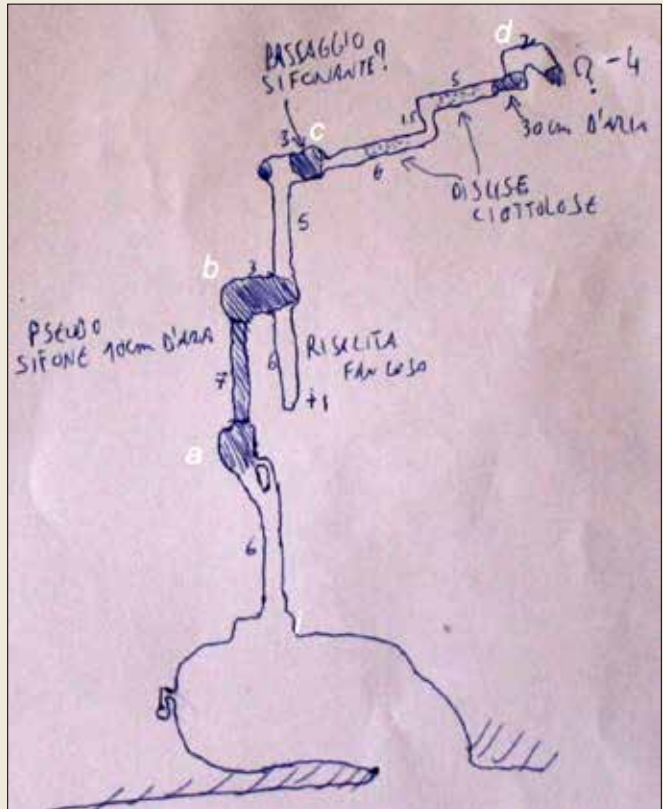 d
2
PASSAGGIO
SIFONANTE?
? -4
5
1.5
30 cm D'ARIA
3
c
6
DISCESE
CIOTTOLOSE
5
b
3
PSEUDO
SIFONE 10cm D'ARIA
7
6
RISALITA
FANGOSA
+1
a
6